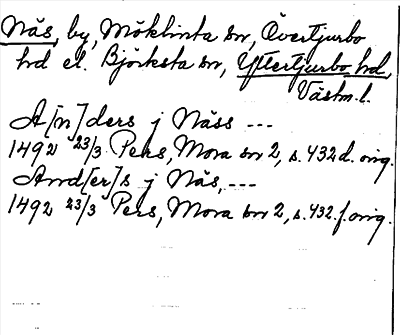 Näs, by, Möklinta sn, Övertjurbo
hd el. Björksta sn, Yttertjurbo hd,
Västm. l.
A[n]ders j Näss ---
1492 23/3 Pers, Mora sn 2, s. 432 d. orig.
And[er]s j Näs, ---
1492 23/3 Pers, Mora sn 2, s. 432. f. orig.